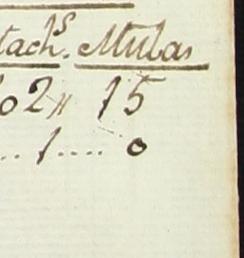 tachs. Mulas
02 " 15
.. 1 .... 0